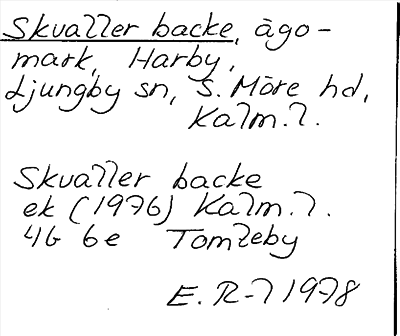 Skvaller backe, ägo-
mark, Harby,
Ljungby sn, S. Möre hd,
Kalm. l.
Skvaller backe
ek (1976) Kalm. l.
4G 6e Tomteby
E. R-l 1978